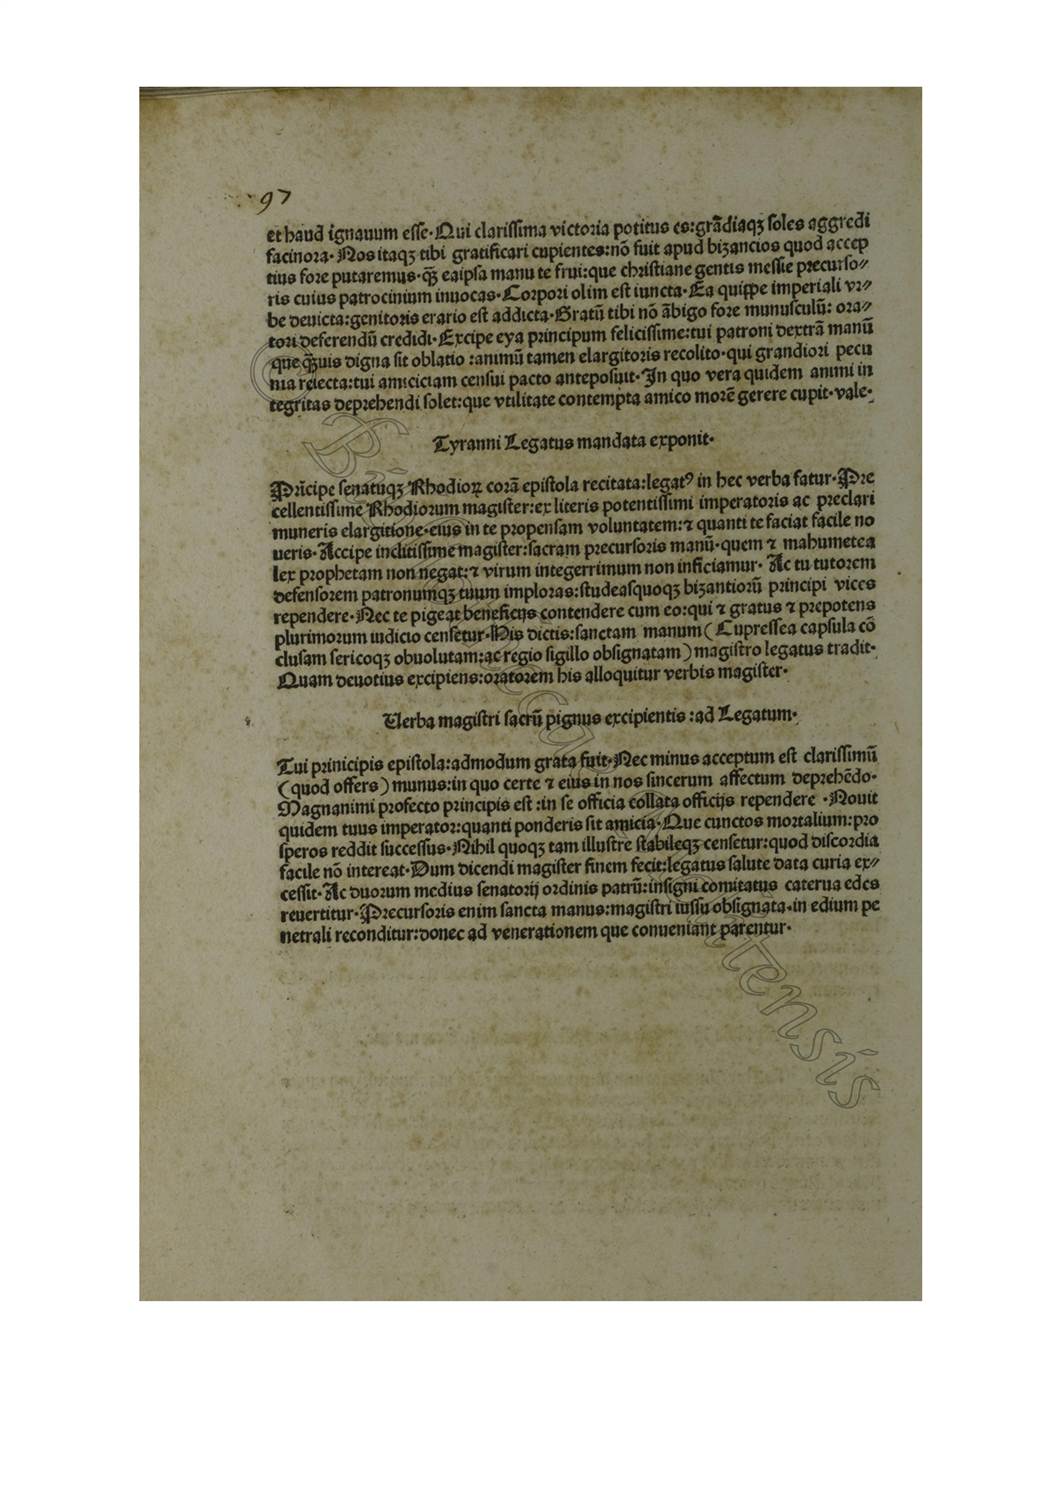 97
et haud ignauum esse·Qui clarissima victoria potitus es:grādiaqꝫ soles aggredi
facinora·Nos itaqꝫ tibi gratificari cupientes:nō fuit apud bizancios quod accep
tius fore putaremus·q̄ꝫ eaipsa manu te frui:que christiane gentis messie precurso⸗
ris cuius patrocinium inuocas·Corpori olim est iuncta·Ea quippe imperiali vr⸗
be deuicta:genitoris erario est addicta·Gratū tibi nō ābigo fore munusculū: ora⸗
tori deferendū credidi·Excipe eya principum felicissime:tui patroni dextrā manū
que q̄ꝫuis digna sit oblatio :animū tamen elargitoris recolito·qui grandiori pecu
nia reiecta:tui amiciciam censui pacto anteposuit·In quo vera quidem animi in
tegritas deprehendi solet:que vtilitate contempta amico morē gerere cupit·vale·
Tyranni Legatus mandata exponit·
Prīcipe senatuqꝫ Rhodioꝝ corā epistola recitata:legatꝰ in hec verba fatur·Pre
cellentissime Rhodiorum magister:ex literis potentissimi imperatoris ac preclari
muneris elargitione·eius in te propensam voluntatem:⁊ quanti te faciat facile no
ueris·Accipe inclitissime magister:sacram precursoris manū·quem ⁊ mahumetea
lex prophetam non negat:⁊ virum integerrimum non inficiamur· Ac tu tutorem
defensorem patronumqꝫ tuum imploras:studeasquoqꝫ bizantiorū principi vices
rependere·Nec te pigeat beneficijs contendere cum eo:qui ⁊ gratus ⁊ prepotens
plurimorum iudicio censetur·His dictis:sanctam manum(Cupressea capsula cō
clusam sericoqꝫ obuolutam:ac regio sigillo obsignatam)magistro legatus tradit·
Quam deuotius excipiens:oratorem his alloquitur verbis magister·
Uerba magistri sacrū pignus excipientis :ad Legatum·
Tui prinicipis epistola:admodum grata fuit·Nec minus acceptum est clarissimū
(quod offers)munus:in quo certe ⁊ eius in nos sincerum affectum deprehēdo·
Magnanimi profecto principis est :in se officia collata officijs rependere ·Nouit
quidem tuus imperator:quanti ponderis sit amicia·Que cunctos mortalium:pro
speros reddit successus·Nihil quoqꝫ tam illustre stabileqꝫ censetur:quod discordia
facile nō intereat·Dum dicendi magister finem fecit:legatus salute data curia ex⸗
cessit·Ac duorum medius senatorij ordinis patrū:insigni comitatus caterua edes
reuertitur·Precursoris enim sancta manus:magistri iussu obsignata·in edium pe
netrali reconditur:donec ad venerationem que conueniant parentur·